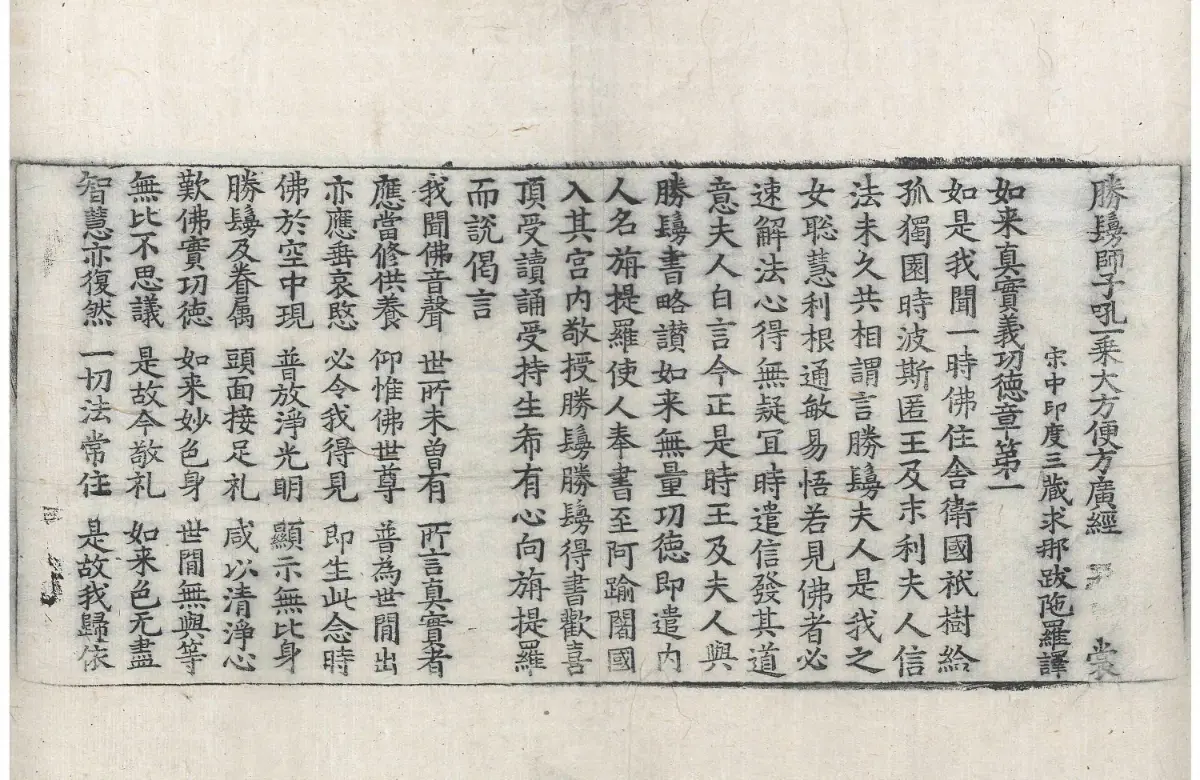 勝鬘師子吼一乗大方便方廣經 裳
宋中印度三蔵求那跋陁羅譯
如来真實義功徳章第一
如是我聞一時佛住舎衛國祇樹給
孤獨園時波斯匿王及末利夫人信
法未久共相謂言勝鬘夫人是我之
女聡慧利根通敏易悟若見佛者必
速解法心得無疑冝時遣信發其道
意夫人白言今正是時王及夫人與
勝鬘書略讃如来無量功徳即遣内
人名旃提羅使人奉書至阿踰闍國
入其宮内敬授勝鬘勝鬘得書歡喜
頂受讀誦受持生希有心向旃提羅
而説偈言
我聞佛音聲 世所未曽有 所言真實者
應當修供養 仰惟佛世尊 普為世間出
亦應垂哀愍 必令我得見 即生此念時
佛於空中現 普放淨光明 顯示無比身
勝鬘及眷属 頭面接足礼 咸以清淨心
歎佛實功徳 如来妙色身 世間無與等
無比不思議 是故今敬礼 如来色无盡
智慧亦復然 一切法常住 是故我歸依